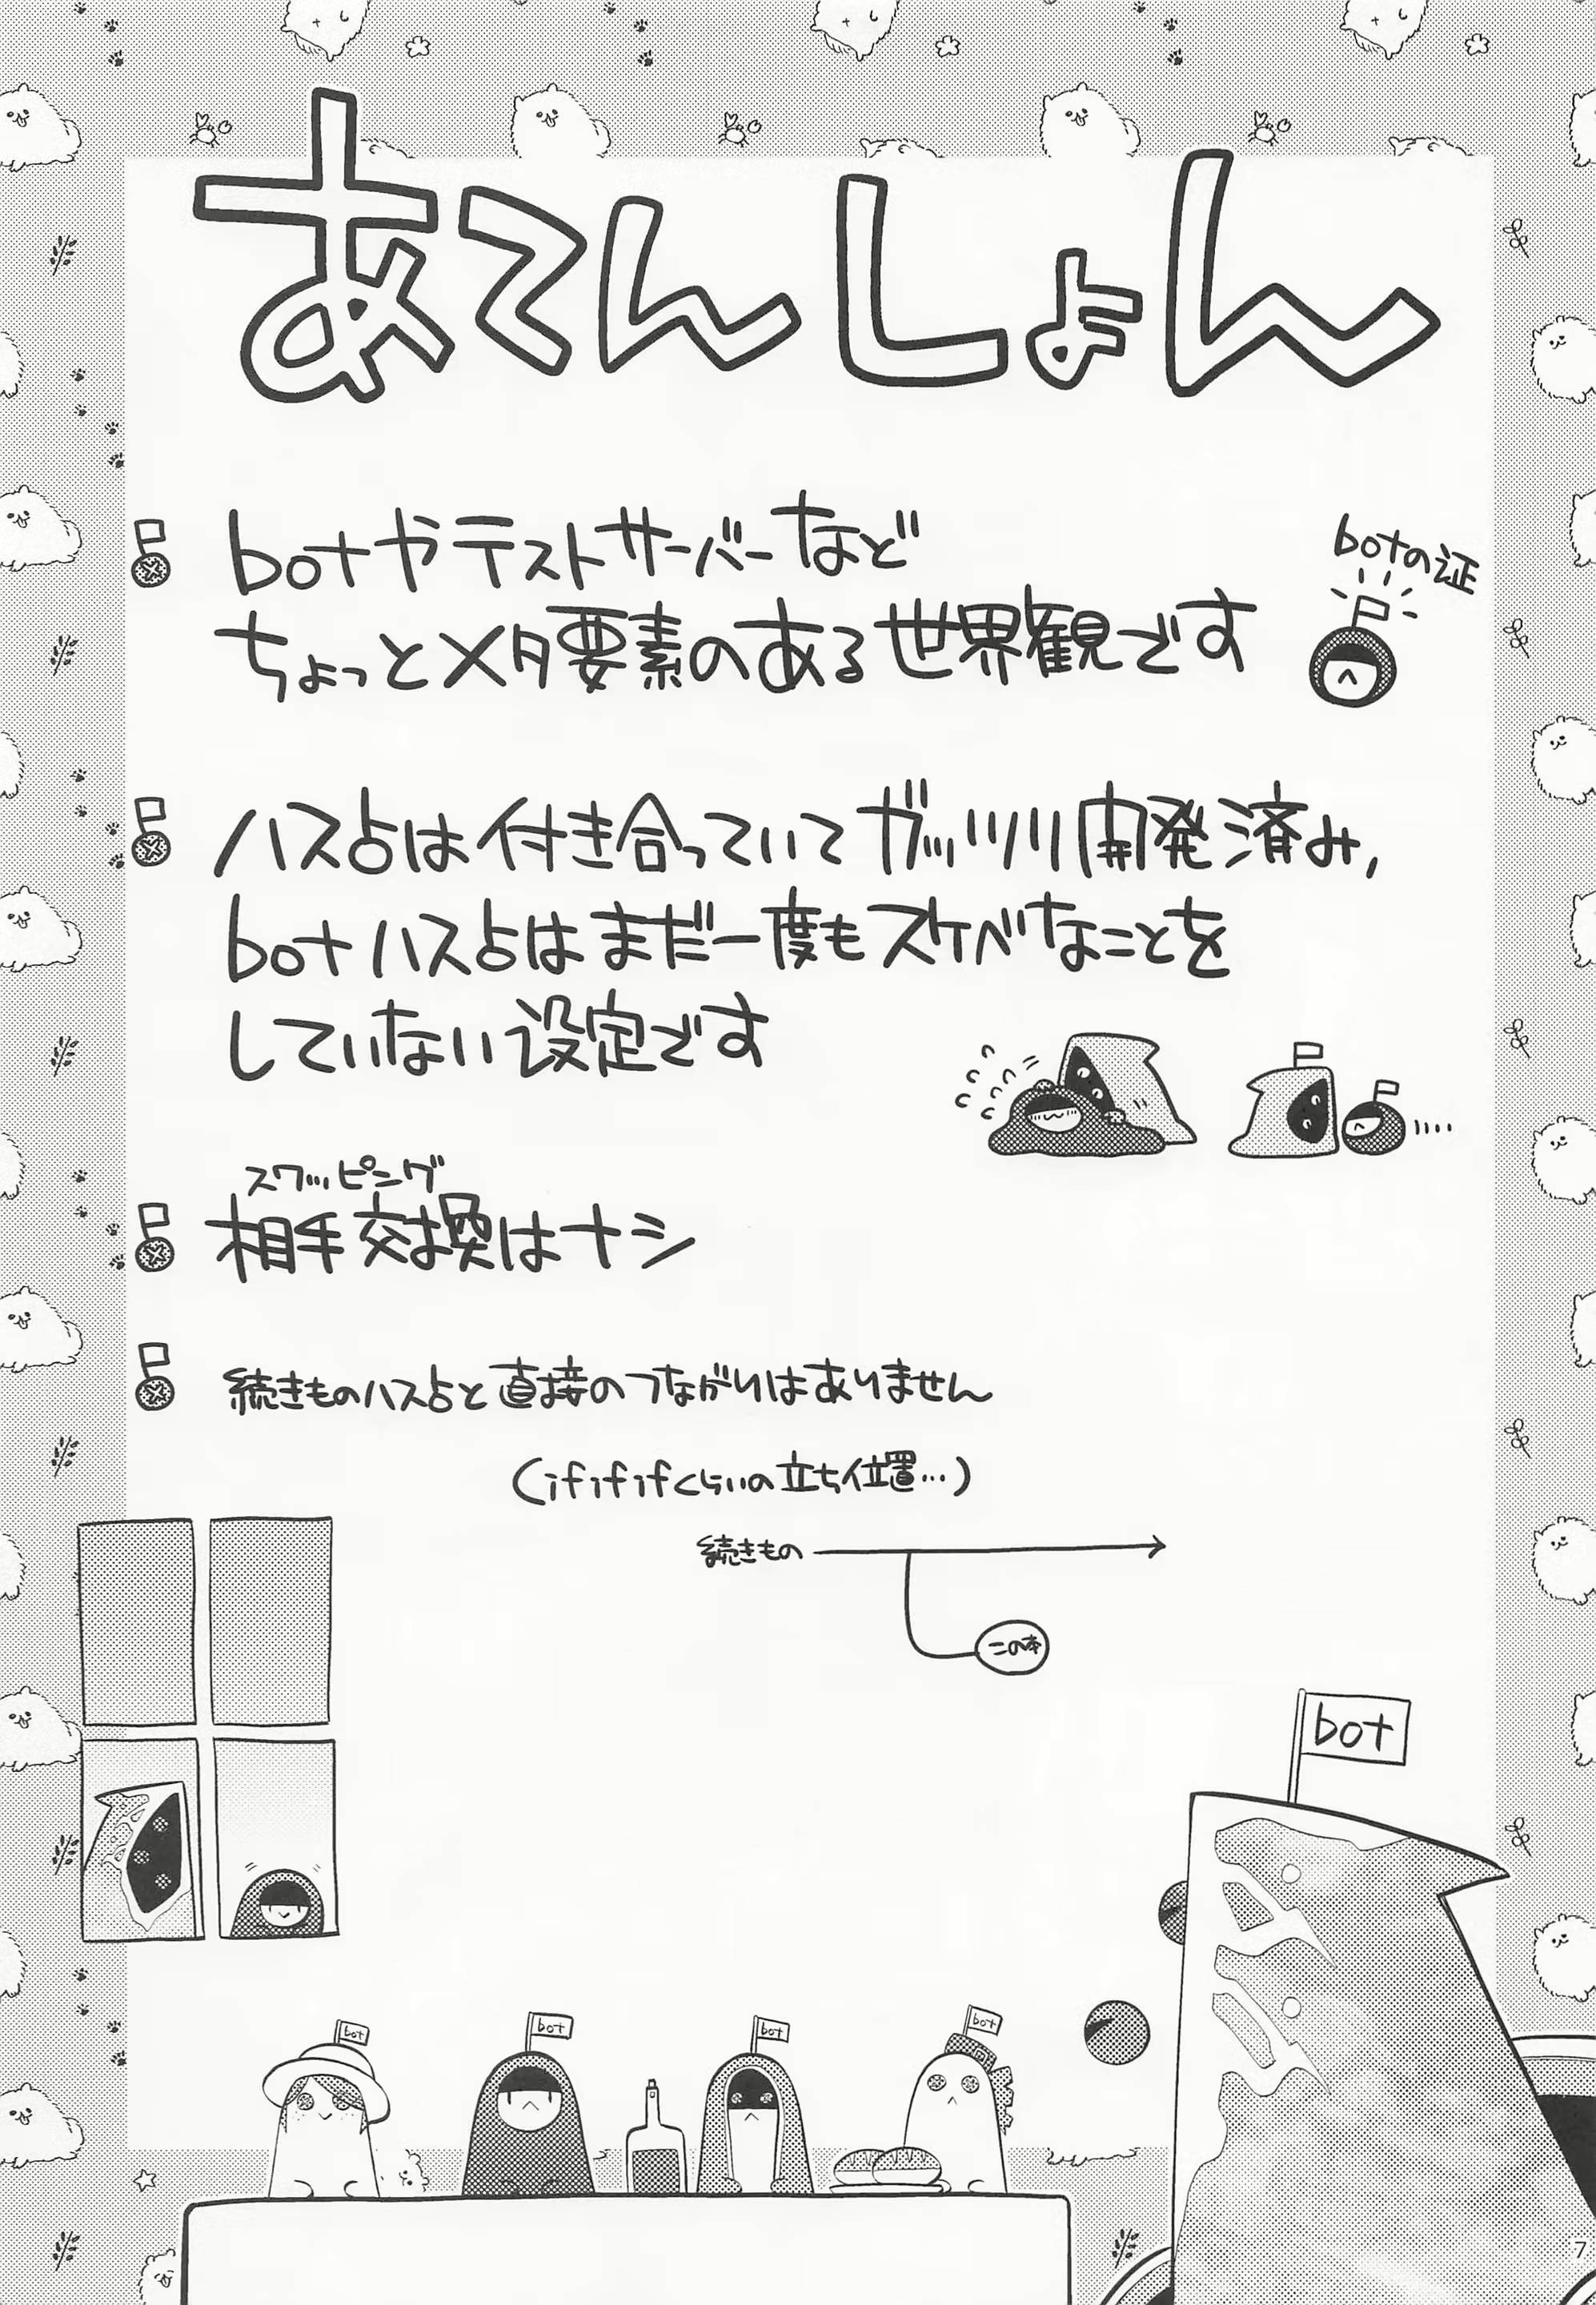 あてんしょん
botやテストサーバーなど
ちょっとメタ要素のある世界観です
botの証
ハス占は付き合っていてガッツリ開発済み,
botハス占はまだ一度もスケベなことを
していない設定です
スワッピング
相手交換はナシ
続きものハス占と直接のつながりはありません
(ifififくらいの立ち位置…)
続きもの
この本
bot
bot
bot
bot
bot
7